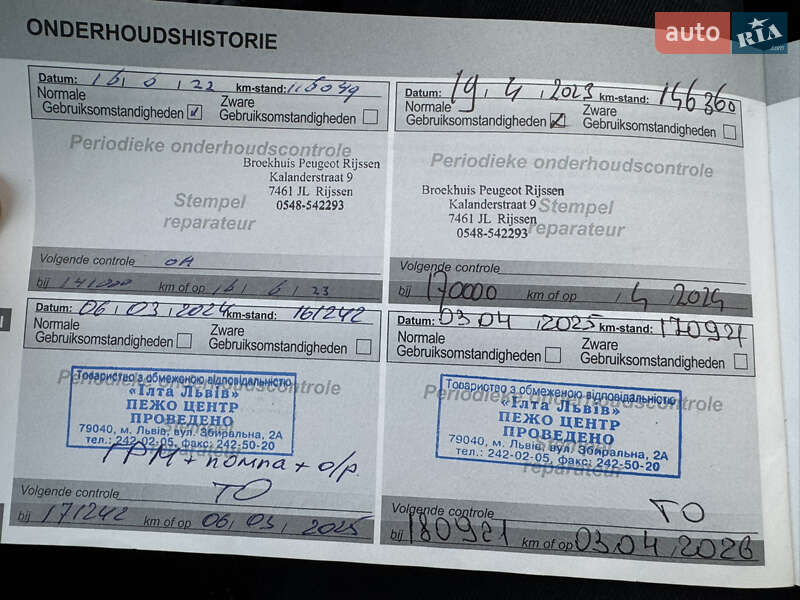 ONDERHOUDSHISTORIE
auto RIA .com
Datum: 16, 6, 22 km-stand: 116049
Normale
Gebruiksomstandigheden
Zware
Gebruiksomstandigheden
Periodieke onderhoudscontrole
Broekhuis Peugeot Rijssen
Kalanderstraat 9
7461 JL Rijssen
0548-542293
Stempel
reparateur
Volgende controle
bij 141000 km of op 16, 6, 23
Datum: 19, 4, 2023 km-stand: 146360
Normale
Gebruiksomstandigheden
Zware
Gebruiksomstandigheden
Periodieke onderhoudscontrole
Broekhuis Peugeot Rijssen
Kalanderstraat 9
7461 JL Rijssen
0548-542293
Stempel
reparateur
Volgende controle
bij 170000 km of op , 4, 2024
Datum: 06, 03, 2024 km-stand: 161242
Normale
Gebruiksomstandigheden
Zware
Gebruiksomstandigheden
Periodieke onderhoudscontrole
Товариство з обмеженою відповідальністю
«Ілта Львів»
ПЕЖО ЦЕНТР
ПРОВЕДЕНО
79040, м. Львів, вул. Збиральна, 2А
тел.: 242-02-05, факс: 242-50-20
Stempel
reparateur
ГРМ + помпа + о/р.
Volgende controle ТО
bij 171242 km of op 06, 03, 2025
Datum: 03 04, 2025 km-stand: 170921
Normale
Gebruiksomstandigheden
Zware
Gebruiksomstandigheden
Periodieke onderhoudscontrole
Товариство з обмеженою відповідальністю
«Ілта Львів»
ПЕЖО ЦЕНТР
ПРОВЕДЕНО
79040, м. Львів, вул. Збиральна, 2А
тел.: 242-02-05, факс: 242-50-20
Stempel
reparateur
Volgende controle ТО
bij 180921 km of op 03.04, 2026